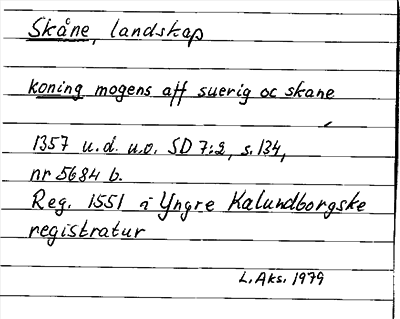 Skåne, landskap
koning mogens aff suerig oc skane
1357 u.d. u.o. SD 7:2, s. 134,
nr 5684 b.
Reg. 1551 i Yngre Kalundborgske
registratur
L. Aks. 1979